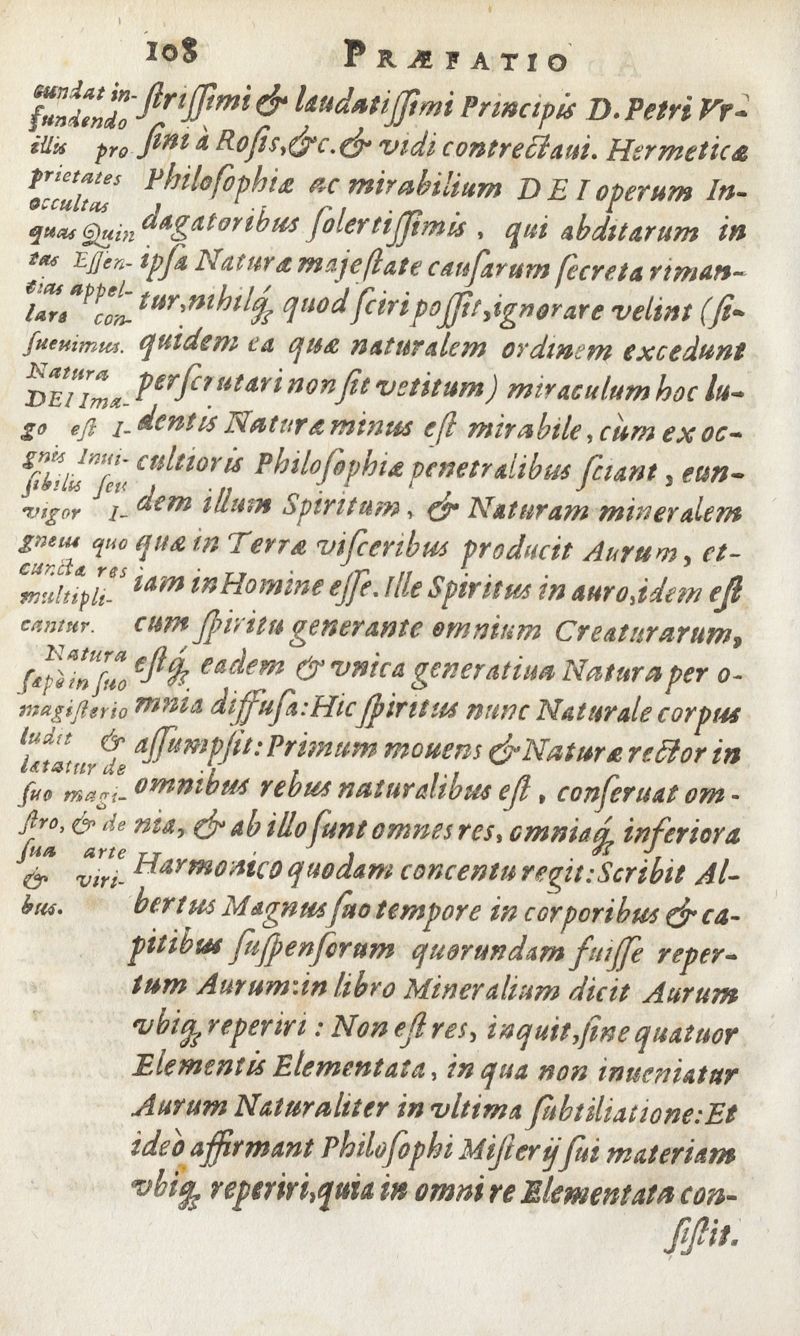 108 PRÆFATIO
cundat in-
fundendo
illis pro
prietates
occultas
quas Quin
tas Essen-
tias appel-
lare con-
sueuimus.
Natura
DEI Ima-
go est I-
gnis Inui-
sibilis seu
vigor I-
gneus quo
cuncta res
multipli-
cantur.
Natura
sæpè in suo
magisterio
ludit &
lætatur de
suo magi-
stro, & de
sua arte
& viri-
bus.
strissimi & laudatissimi Principis D. Petri Vr-
sini à Rosis, &c. & vidi contrectaui. Hermeticæ
Philosophiæ ac mirabilium DEI operum In-
dagatoribus solertissimis, qui abditarum in
ipsa Naturæ majestate causarum secreta riman-
tur, nihilq́ꝫ quod sciri possit, ignorare velint (si-
quidem ea quæ naturalem ordinem excedunt
perscrutari non sit vetitum) miraculum hoc lu-
dentis Naturæ minus est mirabile, cùm ex oc-
cultioris Philosophiæ penetralibus sciant, eun-
dem illum Spiritum, & Naturam mineralem
quæ in Terræ visceribus producit Aurum, et-
iam in Homine esse. Ille Spiritus in auro, idem est
cum spiritu generante omnium Creaturarum,
estq́ꝫ eadem & vnica generatiua Natura per o-
mnia diffusa: Hic spiritus nunc Naturale corpus
assumpsit: Primum mouens & Naturæ rector in
omnibus rebus naturalibus est, conseruat om-
nia, & ab illo sunt omnes res, omniaq́ꝫ inferiora
Harmonico quodam concentu regit: Scribit Al-
bertus Magnus suo tempore in corporibus & ca-
pitibus suspensorum quorundam fuisse reper-
tum Aurum: in libro Mineralium dicit Aurum
vbiqꝫ reperiri: Non est res, inquit, sine quatuor
Elementis Elementata, in qua non inueniatur
Aurum Naturaliter in vltima subtiliatione: Et
ideò affirmant Philosophi Misterij sui materiam
vbiqꝫ reperiri, quia in omni re Elementata con-
sistit.